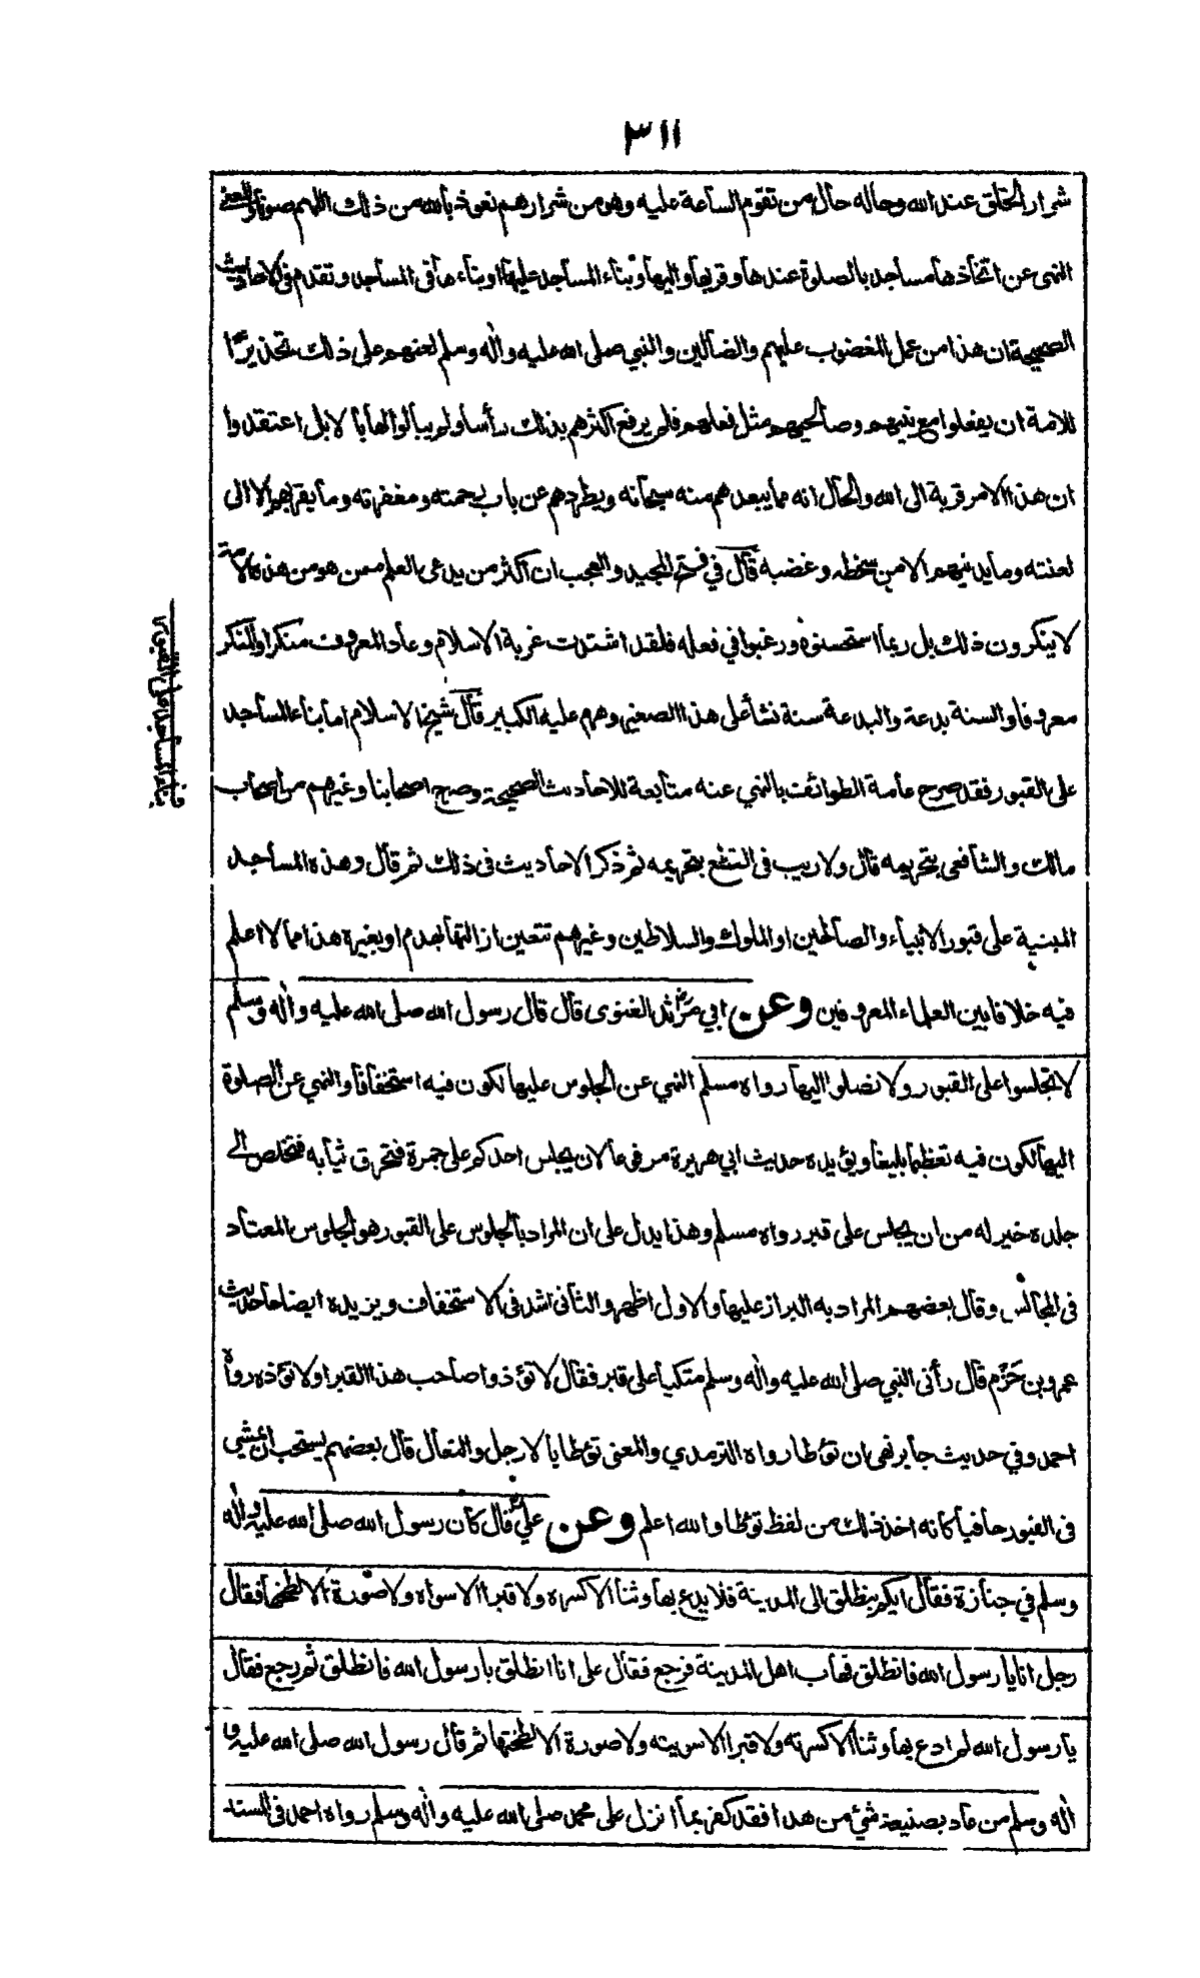 ٣١١
شرار الخلق عند الله وحاله حال من تقوم الساعة عليه وهو من شرارهم نعوذ بالله من ذلك اللهم صونا
النهى عن اتخاذها مساجد بالصلوة عندها وقربها واليها وبناء المساجد عليها او بناءها فى المساجد وتقدم فى الاحاديث
الصحيحة ان هذا من عمل المغضوب عليهم والضالين والنبي صلى الله عليه واله وسلم لعنهم على ذلك تحذيرًا
للامة ان يفعلوا مع نبيهم وصالحيهم مثل فعلهم فلم يرفع اكثرهم بذلك رأسا ولم يبالوا لها بالا بل اعتقدوا
ان هذا الامر قربة الى الله والحال انه مما يبعدهم منه سبحانه ويطردهم عن باب رحمته ومغفرته وما يقربهم الا الى
لعنته وما يدنيهم الا من سخطه وغضبه قال في فتح المجيد والعجب ان اكثر من يدعى العلم ممن هو من هذه الامة
لا ينكرون ذلك بل ربما استحسنوه ورغبوا في فعله فلقد اشتدت غربة الاسلام وعاد المعروف منكرا والمنكر
معروفا والسنة بدعة والبدعة سنة نشأ على هذا الصغير وهرم عليه الكبير قال شيخ الاسلام اما بناء المساجد
على القبور فقد صرح عامة الطوائف بالنهي عنه متابعة للاحاديث الصحيحة وصرح اصحابنا وغيرهم من اصحاب
مالك والشافعى بتحريمه قال ولا ريب فى القطع بتحريمه ثم ذكر الاحاديث فى ذلك ثم قال وهذه المساجد
المبنية على قبور الانبياء والصالحين او الملوك والسلاطين وغيرهم تتعين ازالتها بهدم او بغيره هذا مما لا اعلم
فيه خلافا بين العلماء المعروفين وعن ابي مرثد الغنوى قال قال رسول الله صلى الله عليه واله وسلم
لا تجلسوا على القبور ولا تصلوا اليها رواه مسلم النهي عن الجلوس عليها لكون فيه استخفافا والنهي عن الصلوة
اليها لكون فيه تعظيما بليغا ويؤيده حديث ابي هريرة مرفوعا لان يجلس احدكم على جمرة فتحرق ثيابه فتخلص الى
جلده خير له من ان يجلس على قبر رواه مسلم وهذا يدل على ان المراد بالجلوس على القبور هو الجلوس المعتاد
فى المجالس وقال بعضهم المراد به البراز عليها والاول اظهر والثانى اشد فى الاستخفاف ويزيده ايضاحا حديث
عمرو بن حَزْم قال رأنى النبي صلى الله عليه واله وسلم متكيا على قبر فقال لا تؤذوا صاحب هذا القبر او لا تؤذه رواه
احمد وفي حديث جابر نهى ان تؤطا رواه الترمذي والمعنى تؤطا بالارجل والنعال قال بعضهم يستحب ان يمشي
فى القبور حافيا كانه اخذ ذلك من لفظ تؤطا والله اعلم وعن علي قال كان رسول الله صلى الله عليه واله
وسلم في جنازة فقال ايكم ينطلق الى المدينة فلا يدع بها وثنا الا كسره ولا قبرا الا سواه ولا صورة الا لطخها فقال
رجل انا يا رسول الله فانطلق فهاب اهل المدينة فرجع فقال على انا انطلق يا رسول الله فانطلق ثم رجع فقال
يا رسول الله لم ادع بها وثنا الا كسرته ولا قبرا الا سويته ولا صورة الا لطختها ثم قال رسول الله صلى الله عليه و
اله وسلم من عاد بصنيعة شئ من هذا فقد كفر بما انزل على محمد صلى الله عليه واله وسلم رواه احمد فى المسند
بناء المساجد على القبور